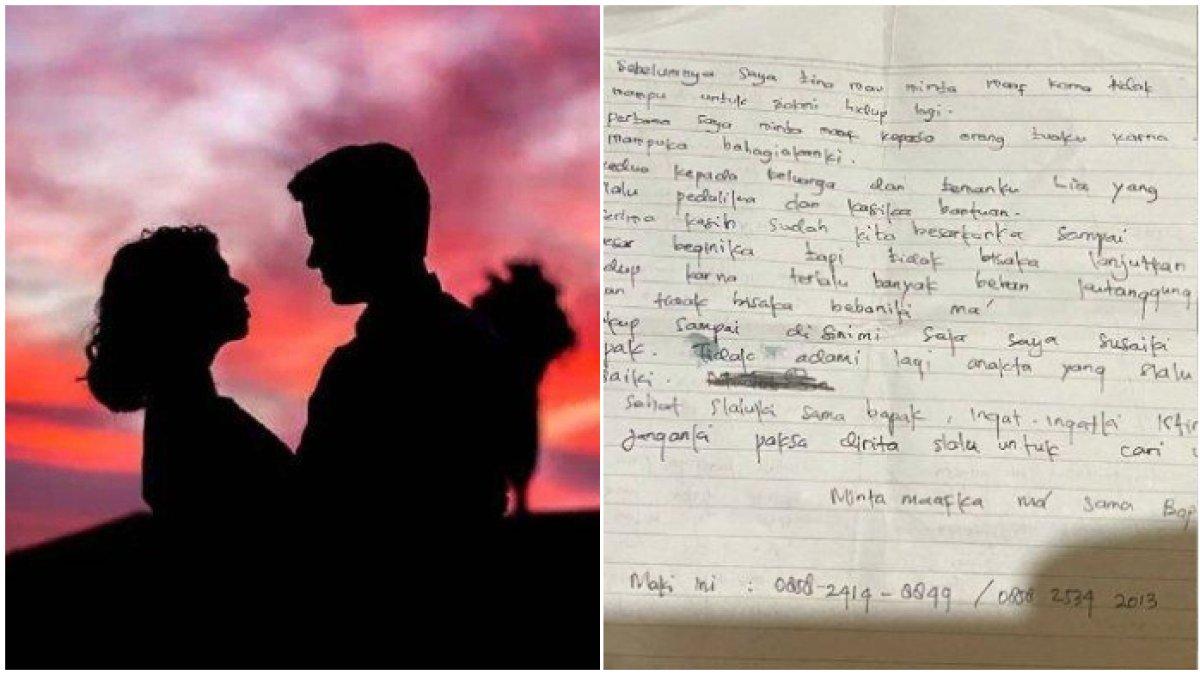 Sebelumnya saya tina mau minta maaf karna tidak
mampu untuk jalani hidup lagi.
pertama saya minta maaf kepada orang tuaku karna
mampuka bahagiakanki.
kedua kepada keluarga dan temanku Lia yang
lalu pedulika dan kasika bantuan.
terima kasih sudah kita besarkanka sampai
besar beginika tapi tidak bisaka lanjutkan
hidup karna terlalu banyak beban kutanggung
an tidak bisaka bebaniki ma'
kup sampai disinimi saja saya susaiki
pak. Tidak adami lagi anakta yang slalu
saiki.
Sehat slaluki sama bapak, ingat-ingatki
janganki paksa dirita slalu untuk cari
Minta maafka ma' sama Bap
Maki ini : 0858-2414-8849 / 0858 2534 2013